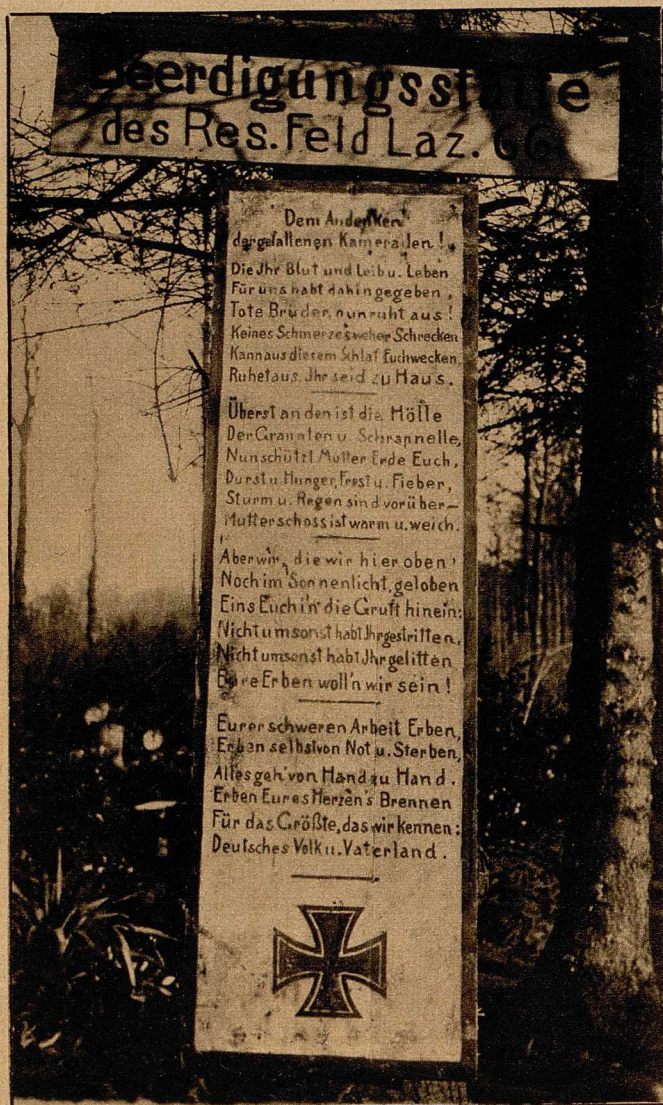 Beerdigungsstätte
des Res. Feld Laz. 66
Dem Andenken
der gefallenen Kameraden!
Die Ihr Blut und Leib u. Leben
Für uns habt dahingegeben,
Tote Brüder, nun ruht aus!
Keines Schmerzes weher Schrecken
Kann aus diesem Schlaf Euch wecken.
Ruhet aus, Ihr seid zu Haus.
Überstanden ist die Hölle
Der Granaten u. Schrapnelle,
Nun schützt Mutter Erde Euch,
Durst u. Hunger, Frost u. Fieber,
Sturm u. Regen sind vorüber–
Mutterschoss ist warm u. weich.
Aber wir, die wir hier oben
Noch im Sonnenlicht, geloben
Eins Euch in die Gruft hinein:
Nicht umsonst habt Ihr gestritten,
Nicht umsonst habt Ihr gelitten
Eure Erben woll'n wir sein!
Eurer schweren Arbeit Erben,
Erben selbst von Not u. Sterben,
Alles geh' von Hand zu Hand.
Erben Eures Herzen's Brennen
Für das Größte, das wir kennen:
Deutsches Volk u. Vaterland.